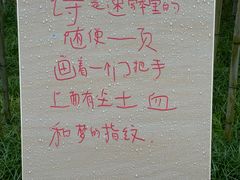 诗是迷踪里的
随便一页
画着一个门把手
上面有尘土 血
和梦的指纹.